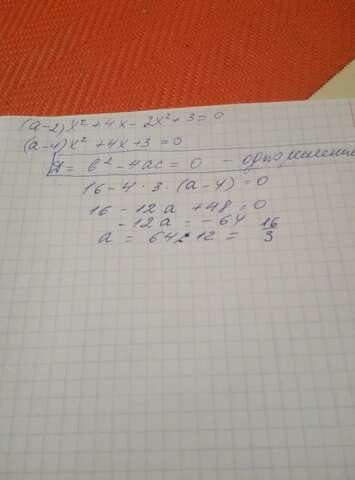 (a-2)x² + 4x - 2x² + 3 = 0
(a-4)x² + 4x + 3 = 0
D = b² - 4ac = 0 - одно решение
16 - 4 · 3 · (a-4) = 0
16 - 12a + 48 = 0
-12a = -64
a = 64 : 12 = 16/3